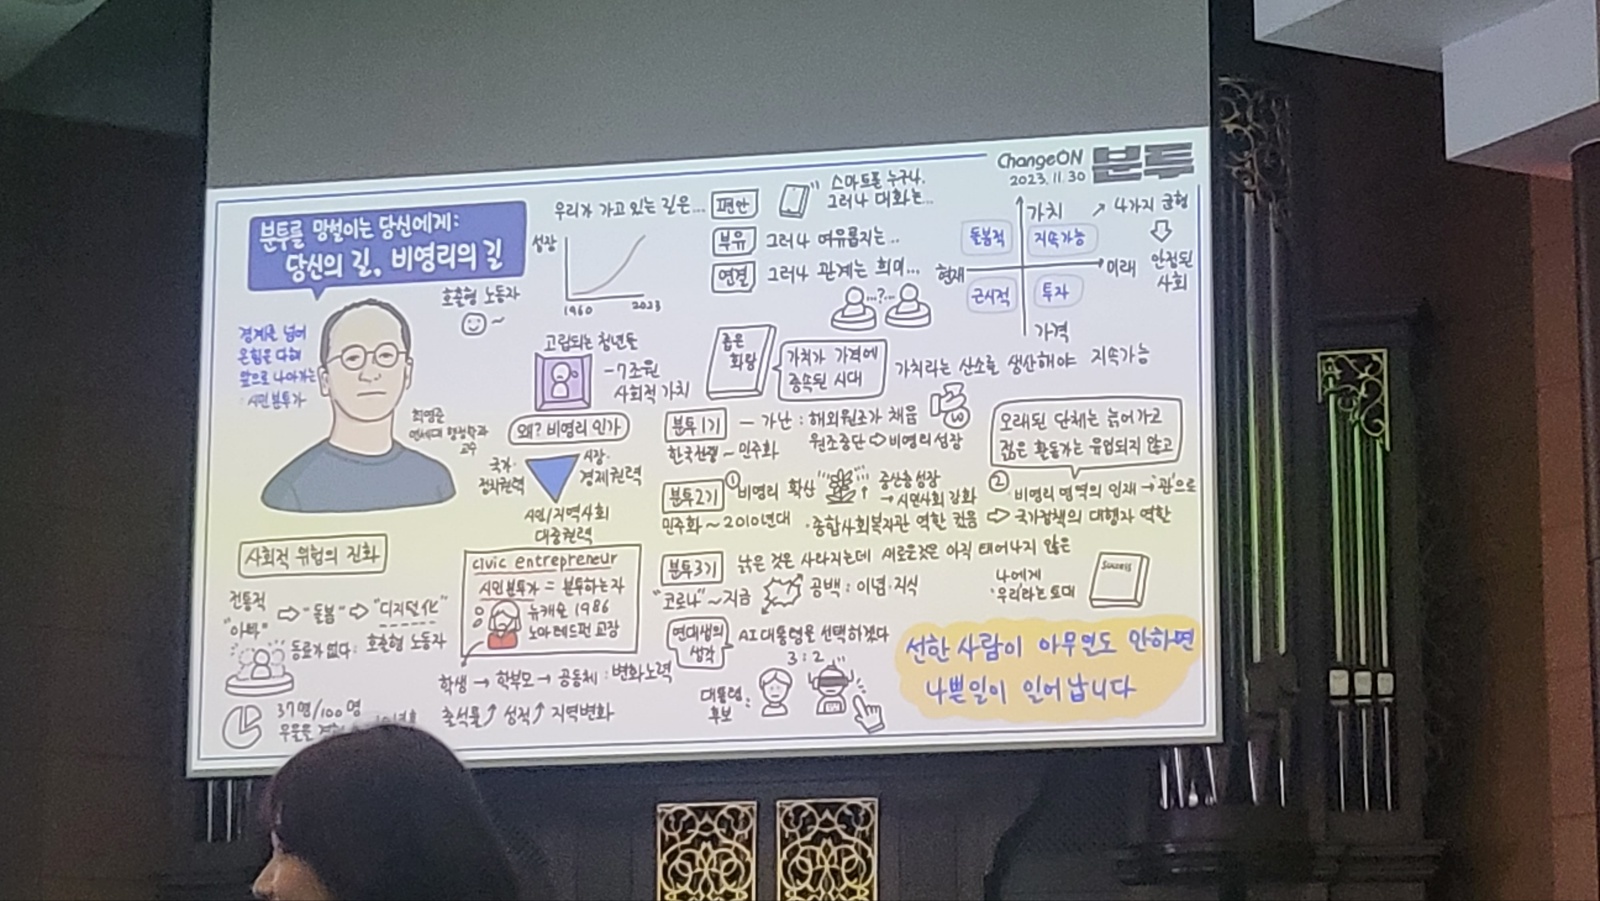 ChangeON 분투
2023. 11. 30
분투를 망설이는 당신에게:
당신의 길, 비영리의 길
호출형 노동자
경계를 넘어
온힘을 다해
앞으로 나아가는
시민분투가
최영준
연세대 행정학과
교수
우리가 가고 있는 길은...
성장
1960 2023
편안
스마트폰 누구나.
그러나 대화는...
부유 그러나 여유롭지는..
연결 그러나 관계는 희미...
...?...
가치
↗ 4가지 균형
돌봄적 지속가능
현재 미래
안정된
사회
근시적 투자
가격
고립되는 청년들
-7조원
사회적 가치
좁은
회랑
가치가 가격에
종속된 시대
가치라는 산소를 생산해야 지속가능
왜? 비영리 인가
국가·
정치권력
시장·
경제권력
시민/지역사회
대중권력
분투 1기 — 가난 : 해외원조가 채움
한국전쟁 ~ 민주화 원조중단 ⇨ 비영리 성장
오래된 단체는 늙어가고
젊은 활동가는 유입되지 않고
분투 2기 ① 비영리 확산
중산층성장
→ 시민사회 강화
민주화 ~ 2010년대 · 종합사회복지관 역할 컸음
② 비영리 영역의 인재 → '관'으로
⇨ 국가정책의 대행자 역할
분투 3기 낡은 것은 사라지는데 새로운것은 아직 태어나지 않은
"코로나" ~ 지금 공백 : 이념·지식
나에게
'우리'라는 토대
사회적 위험의 진화
전통적
"아빠" ⇨ "돌봄" ⇨ "디지털化"
동료가 없다: 호출형 노동자
37명/100명
우울을
civic entrepreneur
시민분투가 = 분투하는자
뉴캐슬 1986
노마 레드펀 교장
학생 → 학부모 → 공동체 : 변화노력
출석률↑ 성적↑ 지역변화
연대생의
생각
AI 대통령을 선택하겠다
3 : 2
대통령
후보 :
선한 사람이 아무일도 안하면
나쁜일이 일어납니다